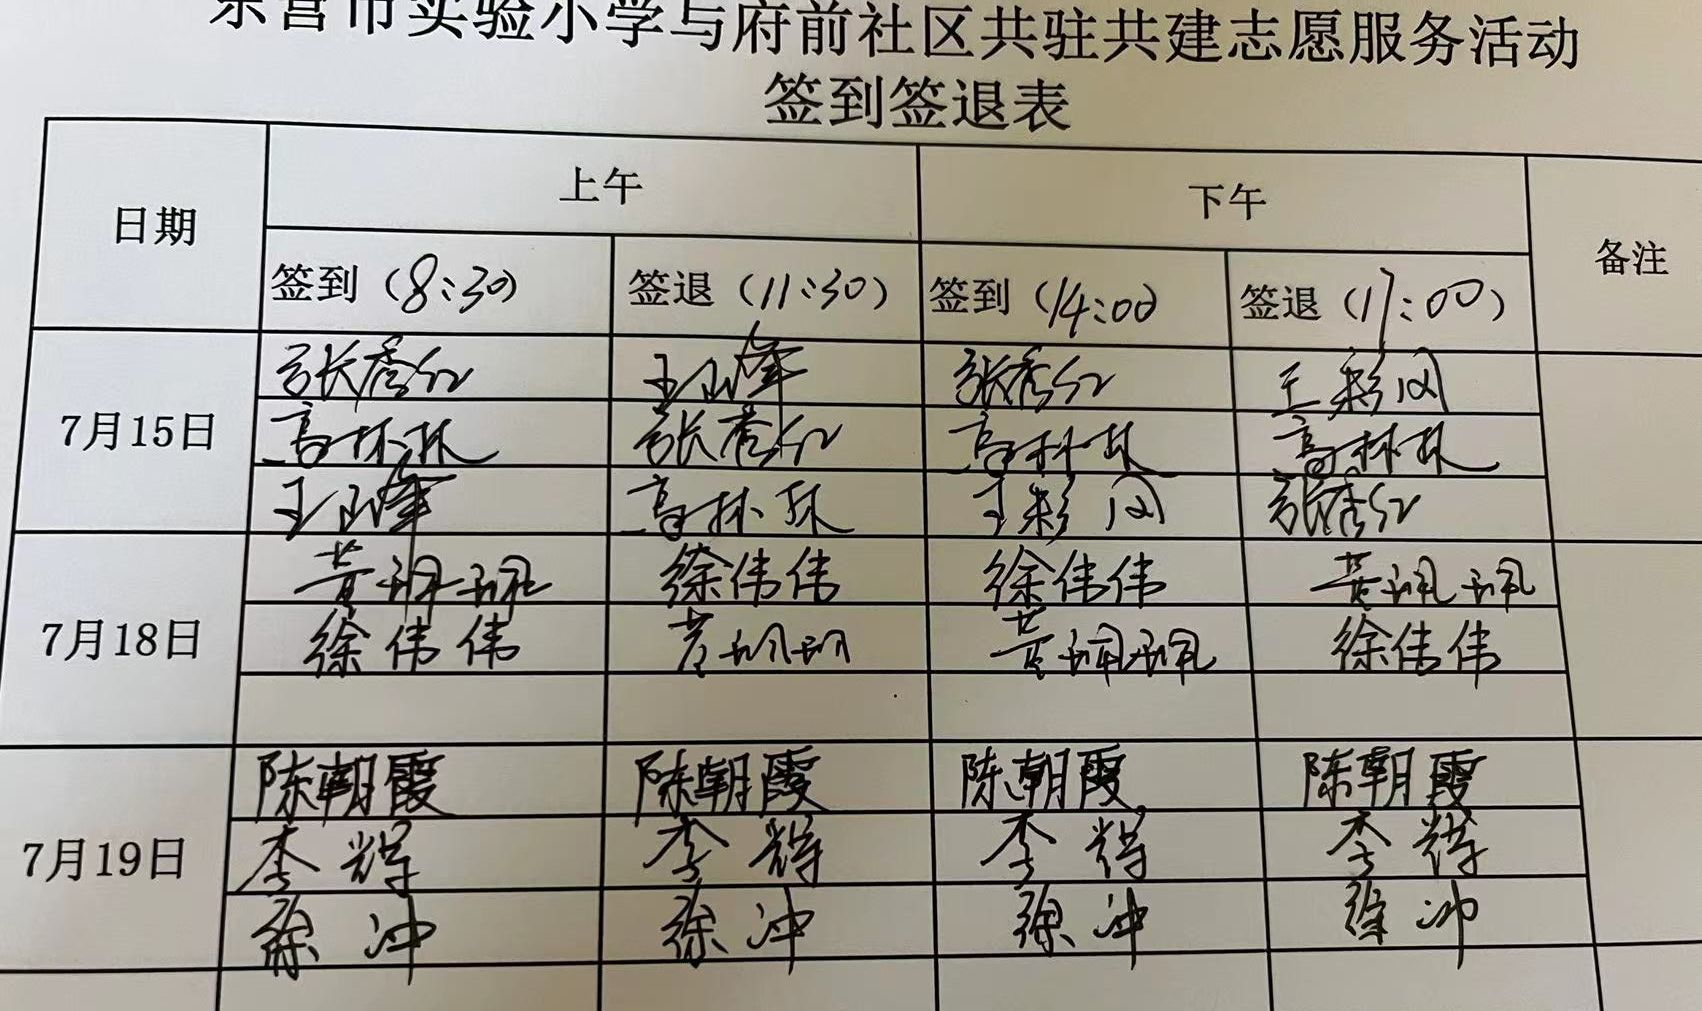 东营市实验小学与府前社区共驻共建志愿服务活动
签到签退表
日期 上午 下午 备注
签到（8:30） 签退（11:30） 签到（14:00） 签退（17:00）
7月15日
张秀红 王山峰 张秀红 王彩凤
高林林 张秀红 高林林 高林林
王山峰 高林林 王彩凤 张秀红
7月18日
黄珮珮 徐伟伟 徐伟伟 黄珮珮
徐伟伟 黄珮珮 黄珮珮 徐伟伟
7月19日
陈朝霞 陈朝霞 陈朝霞 陈朝霞
李辉 李辉 李辉 李辉
徐冲 徐冲 徐冲 徐冲